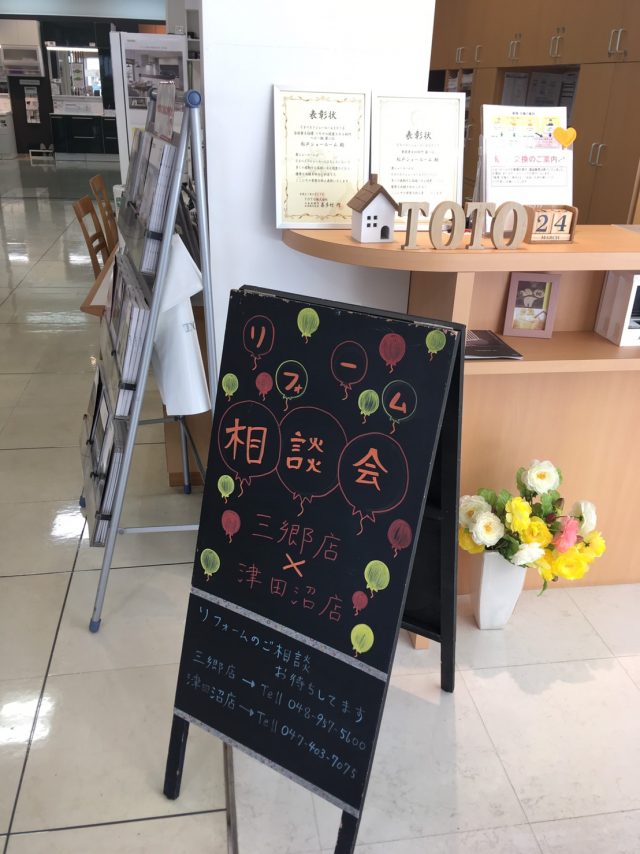 表彰状
松戸ショールーム 殿
表彰状
松戸ショールーム 殿
交換のご案内
TOTO
24
MARCH
リフォーム
相談会
三郷店
×
津田沼店
リフォームのご相談
お待ちしてます
三郷店→Tell 048-957-5600
津田沼店→Tell 047-403-7075